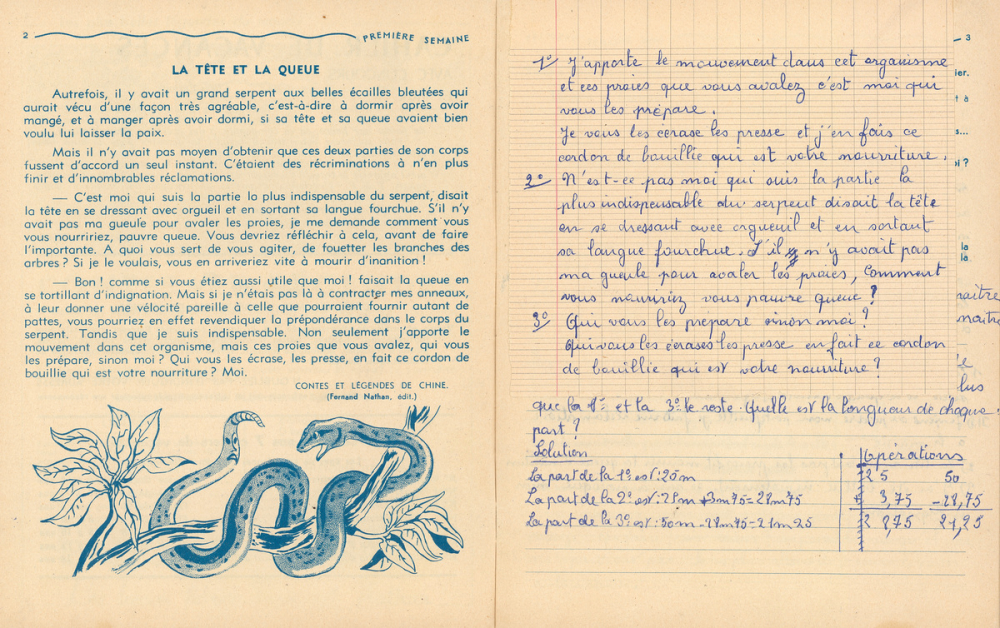 2
PREMIÈRE SEMAINE
LA TÊTE ET LA QUEUE
Autrefois, il y avait un grand serpent aux belles écailles bleutées qui
aurait vécu d'une façon très agréable, c'est-à-dire à dormir après avoir
mangé, et à manger après avoir dormi, si sa tête et sa queue avaient bien
voulu lui laisser la paix.
Mais il n'y avait pas moyen d'obtenir que ces deux parties de son corps
fussent d'accord un seul instant. C'étaient des récriminations à n'en plus
finir et d'innombrables réclamations.
— C'est moi qui suis la partie la plus indispensable du serpent, disait
la tête en se dressant avec orgueil et en sortant sa langue fourchue. S'il n'y
avait pas ma gueule pour avaler les proies, je me demande comment vous
vous nourririez, pauvre queue. Vous devriez réfléchir à cela, avant de faire
l'importante. A quoi vous sert de vous agiter, de fouetter les branches des
arbres ? Si je le voulais, vous en arriveriez vite à mourir d'inanition !
— Bon ! comme si vous étiez aussi utile que moi ! faisait la queue en
se tortillant d'indignation. Mais si je n'étais pas là à contracter mes anneaux,
à leur donner une vélocité pareille à celle que pourraient fournir autant de
pattes, vous pourriez en effet revendiquer la prépondérance dans le corps du
serpent. Tandis que je suis indispensable. Non seulement j'apporte le
mouvement dans cet organisme, mais ces proies que vous avalez, qui vous
les prépare, sinon moi ? Qui vous les écrase, les presse, en fait ce cordon de
bouillie qui est votre nourriture ? Moi.
CONTES ET LÉGENDES DE CHINE.
(Fernand Nathan, édit.)
3
1° J'apporte le mouvement dans cet organisme
et ces proies que vous avalez c'est moi qui
vous les prépare.
Je vous les écrase les presse et j'en fais ce
cordon de bouillie qui est votre nourriture.
2° N'est-ce pas moi qui suis la partie la
plus indispensable du serpent disait la tête
en se dressant avec orgueuil et en sortant
sa langue fourchue. S'il n'y avait pas
ma gueule pour avaler les proies, comment
vous nourririez vous pauvre queue ?
3° Qui vous les prepare sinon moi ?
Qui vous les écrases les presse en fait ce cordon
de bouillie qui est votre nourriture ?
que la 1re et la 3e le reste. Quelle est la longueur de chaque
part ?
Solution
Opérations
La part de la 1e est : 25m
25 50
La part de la 2e est : 25m + 3m75 = 28m75
+ 3,75 -28,75
La part de la 3e est : 50m - 28m75 = 21m25
28,75 21,25